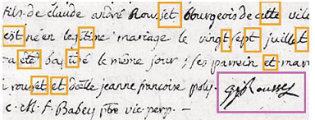 fils de claude andré Rousset bourgeois de cette vile
est né en legitime mariage le vingt sept juillet
a été batisé le même jour ; ses parrein et mar
i rouset et dlle jeanne francoise poly
c. M. F. Babey ptre vic perp.